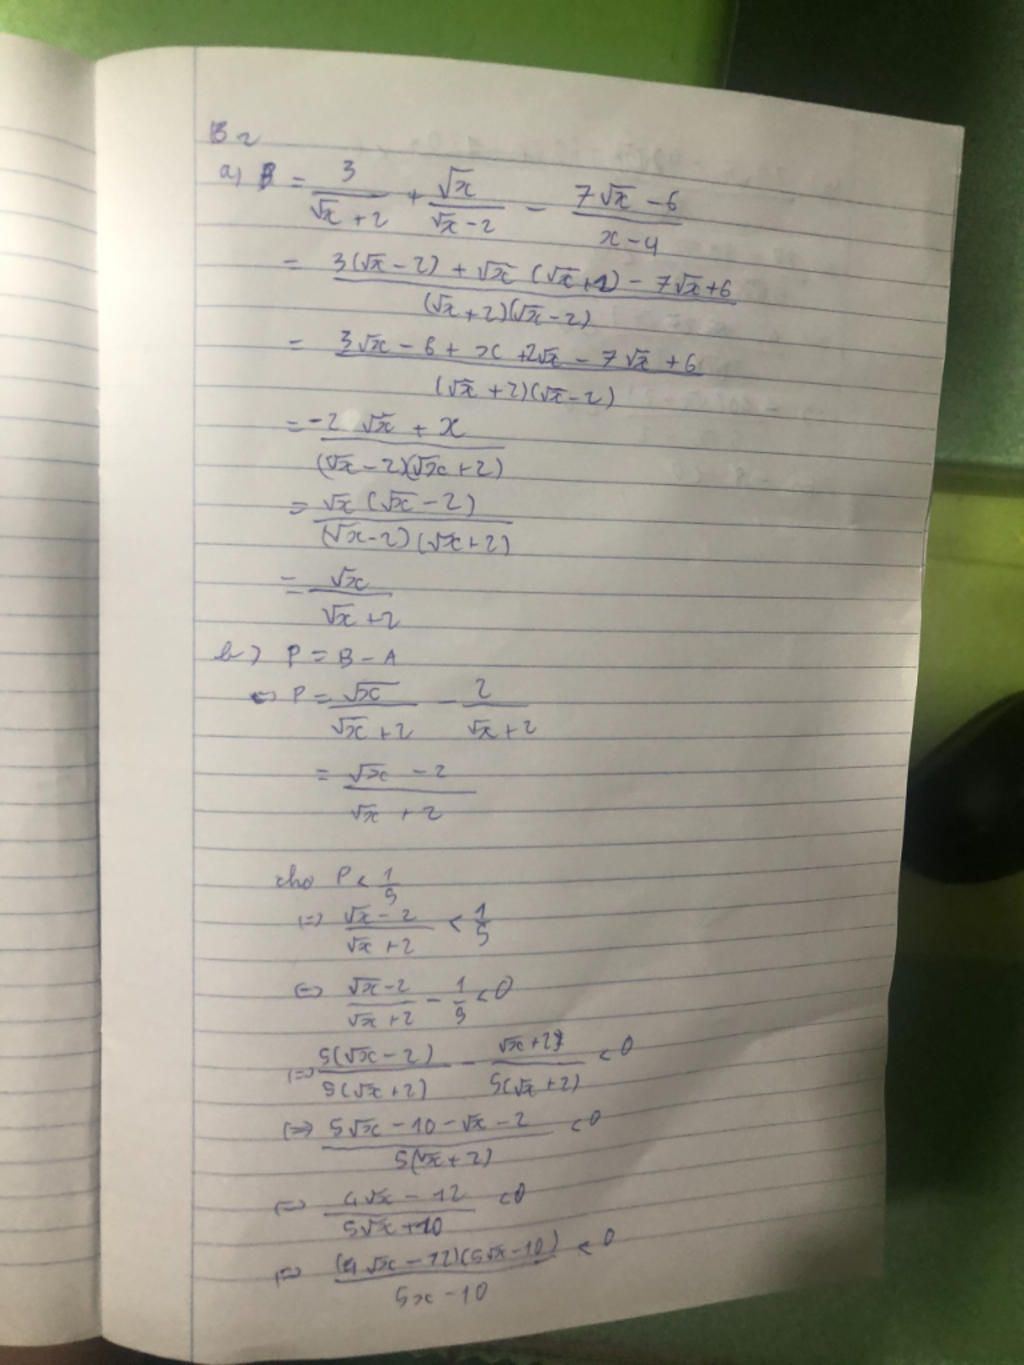 B2
a) B = 3/(√x + 2) + √x/(√x - 2) - (7√x - 6)/(x - 4)
= (3(√x - 2) + √x (√x + 2) - 7√x + 6)/((√x + 2)(√x - 2))
= (3√x - 6 + x + 2√x - 7√x + 6)/((√x + 2)(√x - 2))
= (-2√x + x)/((√x - 2)(√x + 2))
= (√x (√x - 2))/((√x - 2)(√x + 2))
= √x/(√x + 2)
b) P = B - A
⇔ P = √x/(√x + 2) - 2/(√x + 2)
= (√x - 2)/(√x + 2)
cho P < 1/5
⇔ (√x - 2)/(√x + 2) < 1/5
⇔ (√x - 2)/(√x + 2) - 1/5 < 0
⇔ 5(√x - 2)/5(√x + 2) - (√x + 2)/5(√x + 2) < 0
⇔ (5√x - 10 - √x - 2)/5(√x + 2) < 0
⇔ (4√x - 12)/(5√x + 10) < 0
⇔ (4√x - 12)(5√x - 10)/(5x - 10) < 0